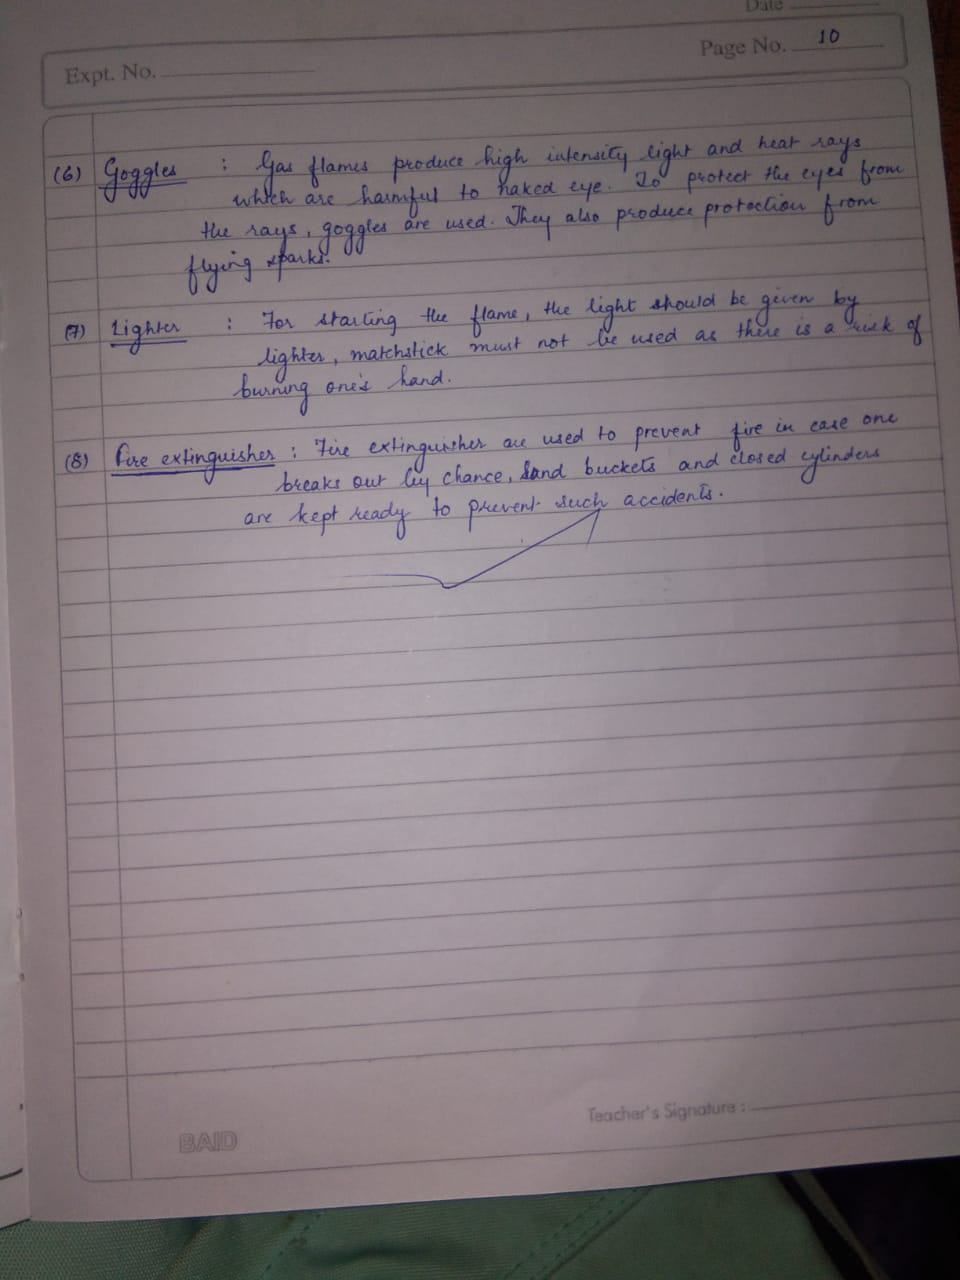 Date
Expt. No.
Page No. 10
(6) Goggles : Gas flames produce high intensity light and heat rays
which are harmful to naked eye. To protect the eyes from
the rays, goggles are used. They also produce protection from
flying sparks.
(7) Lighter : For starting the flame, the light should be given by
lighter, matchstick must not be used as there is a risk of
burning one's hand.
(8) Fire extinguisher : Fire extinguisher are used to prevent fire in case one
breaks out by chance, Sand buckets and closed cylinders
are kept ready to prevent such accidents.
Teacher's Signature :
BAID